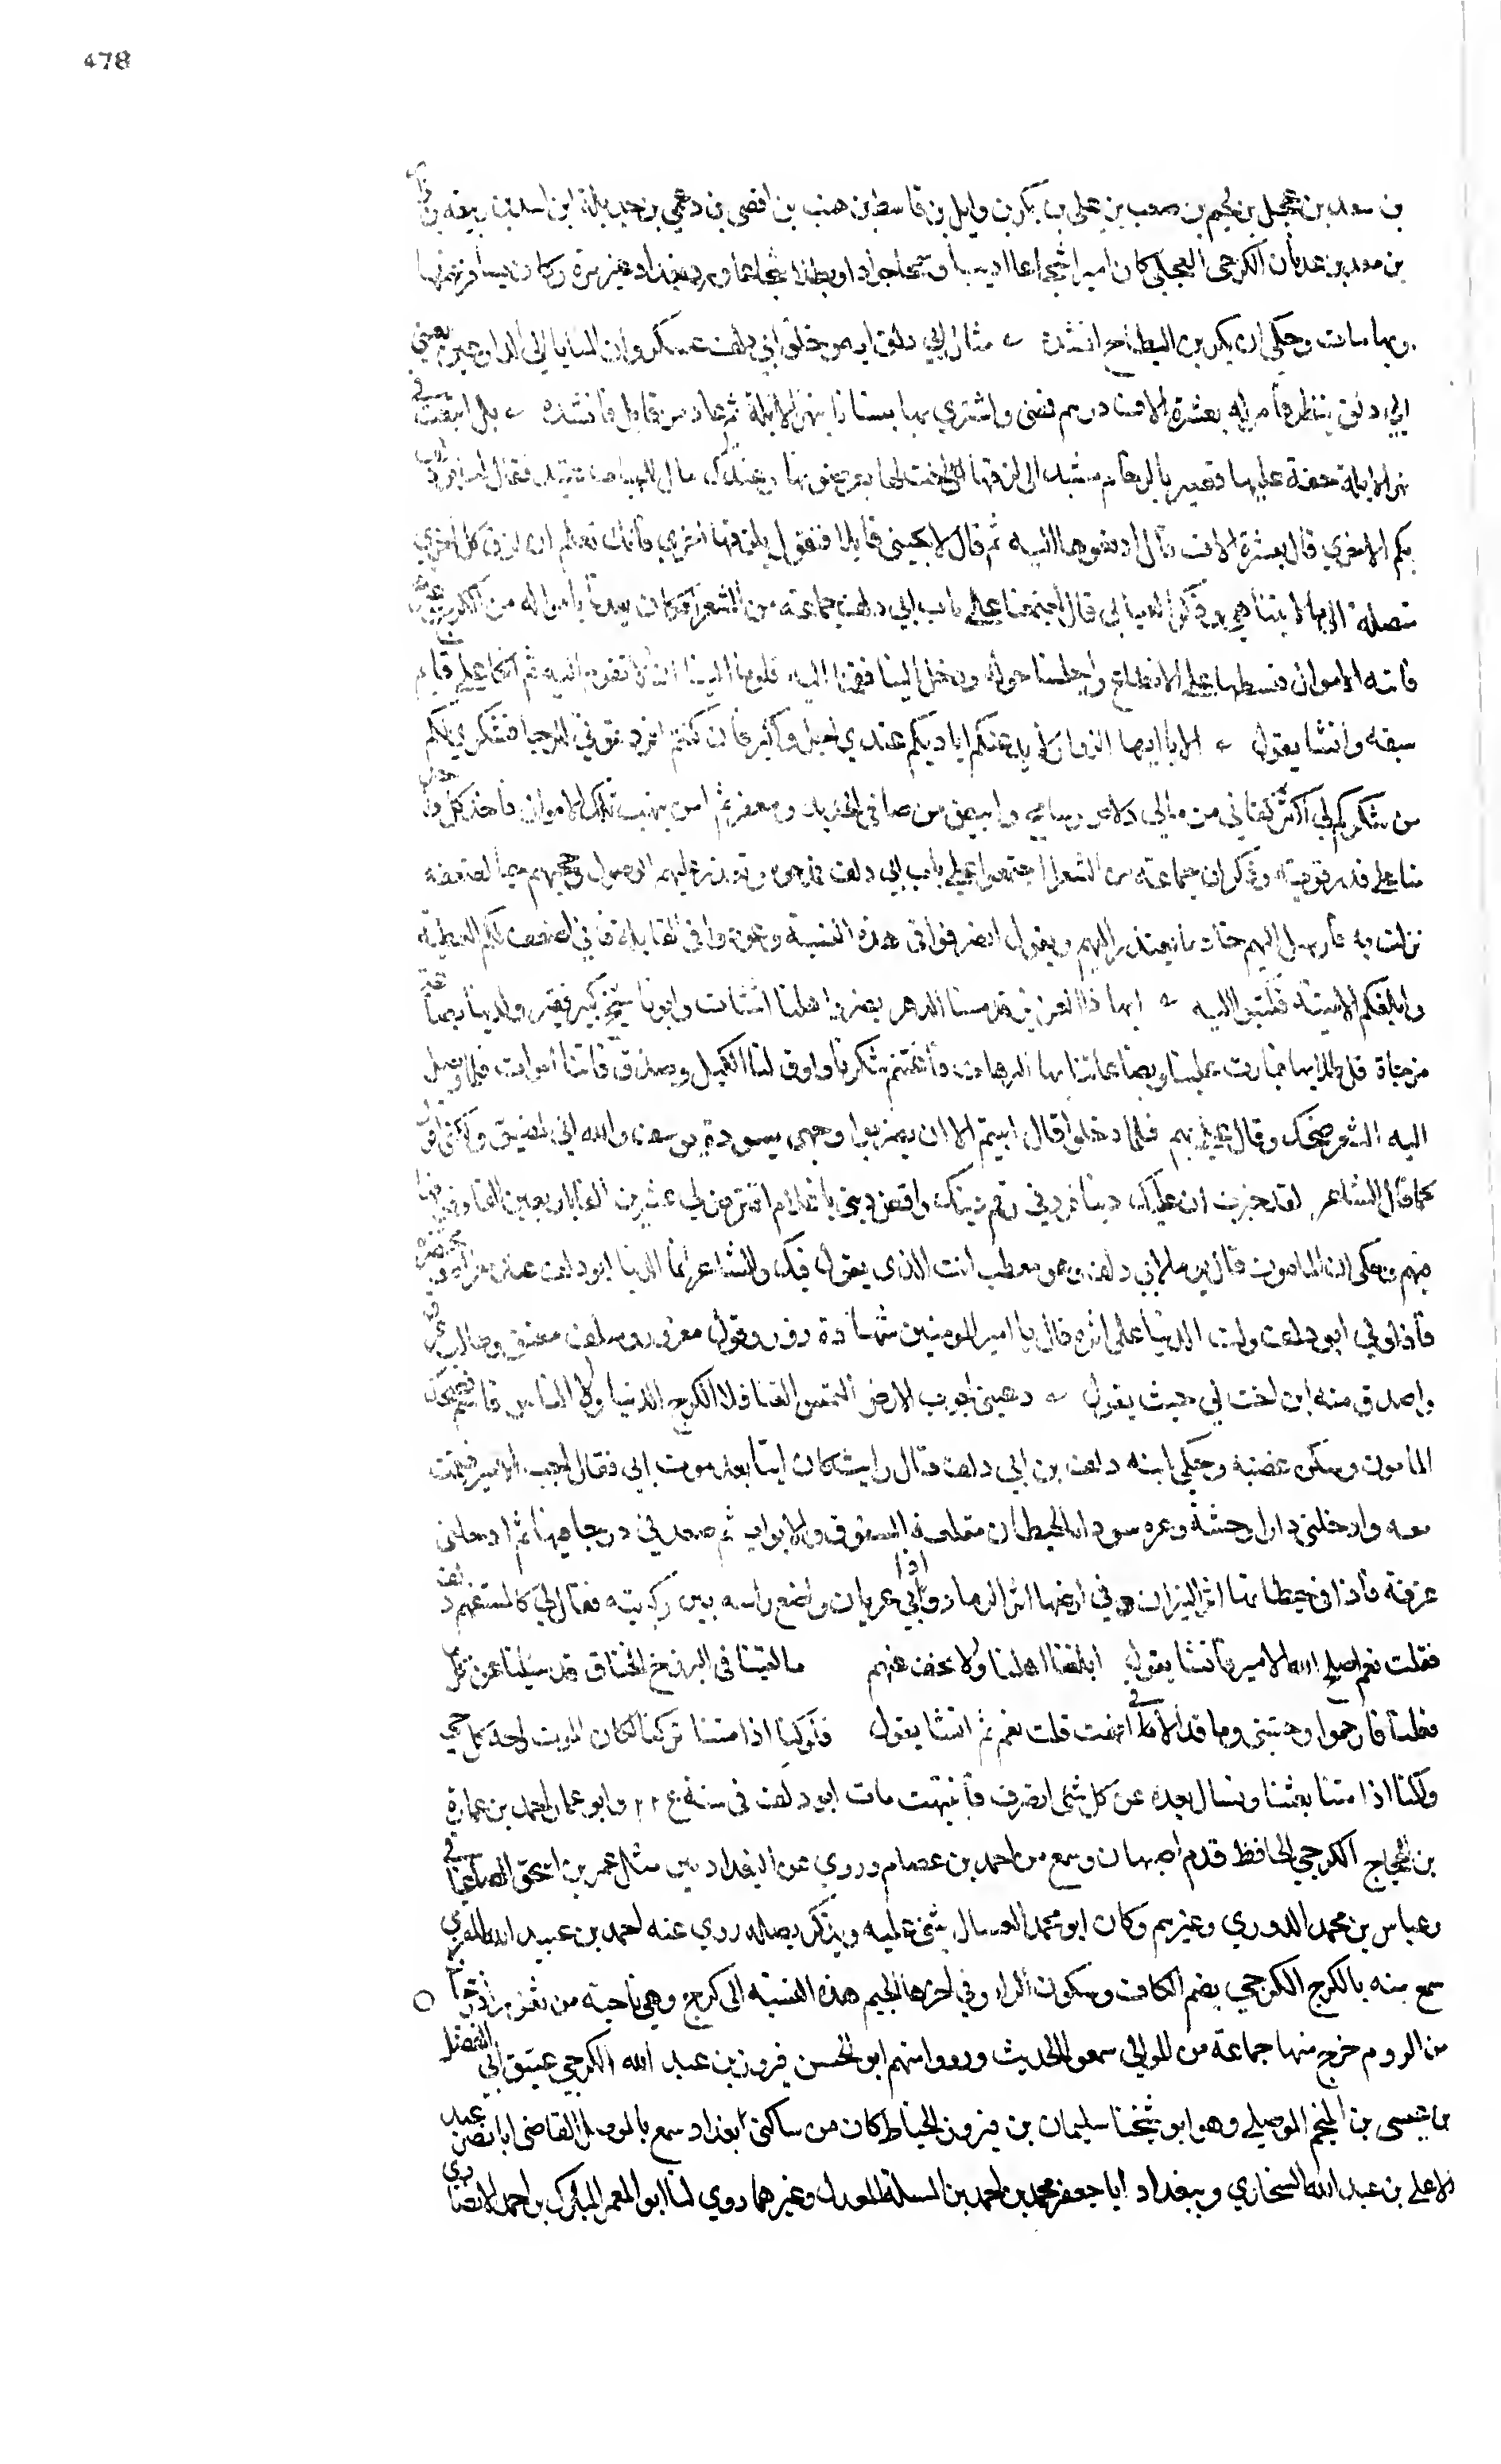 478
بن سعد بن عجل بن لجيم بن صعب بن علي بن بكر بن وايل بن قاسط بن هنب بن افصى بن دعمي بن جديلة ابن اسد بن ربيعه بن
بن معد بن عدنان الكرجي العجلي كان اميرا شجاعا اديبا وسمحا جوادا وبطلا شجاعا ورد بغداد غير مرة وكان يسافر عنها
وبها مات وحكى ان بكر بن البطاح انشده مثال ابي دلف امه وخلق ابي دلف عسكر وان المنايا الى الدارعين بعيني
ابي دلف تنظر فامر له بعشرة الاف درهم فمضى واشترى بها بستانا بنهر الابلة ثم عاد من قابل فانشده بك ابتعت في
نهر الابلة عليها قصير بالرخام مشيد الى لزقها اخت لها يعرضونها وعندك مال للهبات عتيد فقال له ابو دلف
بكم الاخرى قال بعشرة الاف قال ادفعوها اليه ثم قال لا تجيني قابلا فتقول بلزقها اخرى فانك تعلم ان لزق كل اخرى
متصلة الى ما لا يتناهى وذكر العتابي قال اجتمعنا على باب ابي دلف جماعة من الشعرا فكان يعدنا بامواله من الكرج وغيرها
فاتته الاموال فبسطها على الانطاع واجلسنا حولها ودخل الينا فقمنا اليه فاومأ الينا ان لا نقوم اليه ثم اتكا على قايم
سيفه وانشا يقول الا يا ايها الزوار لا يد عندكم اياديكم عندي اجل واكثر فان كنتم افردتموني للرجا فشكري لكم
من شكركم لي اكثر كفاني من مالي دلاص وسابح وابيض من صافي الحديد ومغفر ثم امر بنهب تلك الاموال فاخذ كل واحد
منا على قدر قوته وذكر ان جماعة من الشعرا اجتمعوا على باب ابي دلف فمدحوه وتعذر عليهم الوصول وحجبهم حيا لضيقة
نزلت به فارسل اليهم خادما يعتذر اليهم ويقول انصرفوا في هذه السنة وعودوا في القابلة فاني اضعف لكم العطية
وابلغكم الامنية فكتبوا اليه ايها ذا العزيز قد مسنا الدهر بضر واهلنا اشتات وابونا شيخ كبير فقير ولدينا بضاعة
مزجاة قل طلابها فبارت علينا وبضاعاتنا بها الترهات فاغتنم شكرنا واوف لنا الكيل وصدق فاننا اموات فلما وصل
اليه الشعر ضحك وقال علي بهم فلما دخلوا قال ابيتم الا ان تضربوا وجهي بسورة يوسف والله اني لمضيق ولكني اقول
كما قال الشاعر لقد خبرت ان عليك دينا فزد في رقم دينك واقض ديني يا غلام اقترض لي عشرين الفا باربعين الفا وفرقها
فيهم وحكى ان المامون قال يوما لابي دلف وهو مقطب انت الذي يقول فيك الشاعر انما الدنيا ابو دلف عند مغزاه ومحتضره
فاذا ولى ابو دلف ولت الدنيا على اثره فقال يا امير المومنين شهادة زور وقول مغرور وملق معتف وطالب عرف
واصدق منه ابن اخت لي حيث يقول دعيني اجوب الارض التمس الغنا فلا الكرج الدنيا ولا الناس قاسم فضحك
المامون وسكن غضبه وحكى ابنه دلف بن ابي دلف قال رايت كان اتيا بعد موت ابي فقال اجب الامير فقمت
معه وادخلني دارا وحشة وعرة سودا الحيطان مقلعة السقوف والابواب ثم صعد في درجا فيها ثم ادخلني
غرفة فاذا في حيطانها اثر النيران وفي ارضها اثر الرماد واذا ابي عريان واضع راسه بين ركبتيه فقال لي كالمستفهم دلف
فقلت نعم اصلح الله الامير فانشا يقول ابلغنا اهلنا ولا تخف عنهم ما لقينا في البرزخ الخناق قد سئلنا عن كل
ما فعلنا فارحموا وحشتي وما قد الاقي افهمت قلت نعم ثم انشا يقول فلو كنا اذا متنا تركنا لكان الموت راحة كل حي
ولكنا اذا متنا بعثنا ونسال بعده عن كل شى انصرف فانتبهت مات ابو دلف في سنة وابو عمار احمد بن عمارة
بن الحجاج الكرجي الحافظ قدم اصبهان وسمع من احمد بن عصام وروي عن البغداديين مثل محمد بن اسحق الصاغاني
وعباس بن محمد الدوري وغيرهم وكان ابو محمد العسال يثني عليه ويذكر بصله روي عنه احمد بن عبيد الله المقري
سمع منه بالكرج الكرجي بضم الكاف وسكون الراء وفي اخرها الجيم هذه النسبة الى كرج وهي ناحية من ثغور اذربيجان
من الروم خرج منها جماعة من الموالي سمعوا الحديث ورووا منهم ابو الحسن فيروز بن عبد الله الكرجي عتيق ابي الفضل
بن عيسى بن المنجم الموصلي وهو ابو شيخنا سليمان بن فيروز الخياط كان من ساكني بغداد سمع بالموصل القاضي ابا نصر عبيد
الاعلى بن عبد الله السنجاري وببغداد ابا جعفر محمد بن احمد بن المسلمة المعدل وغيرهما روي لنا ابو المعمر المبارك بن احمد الانصاري